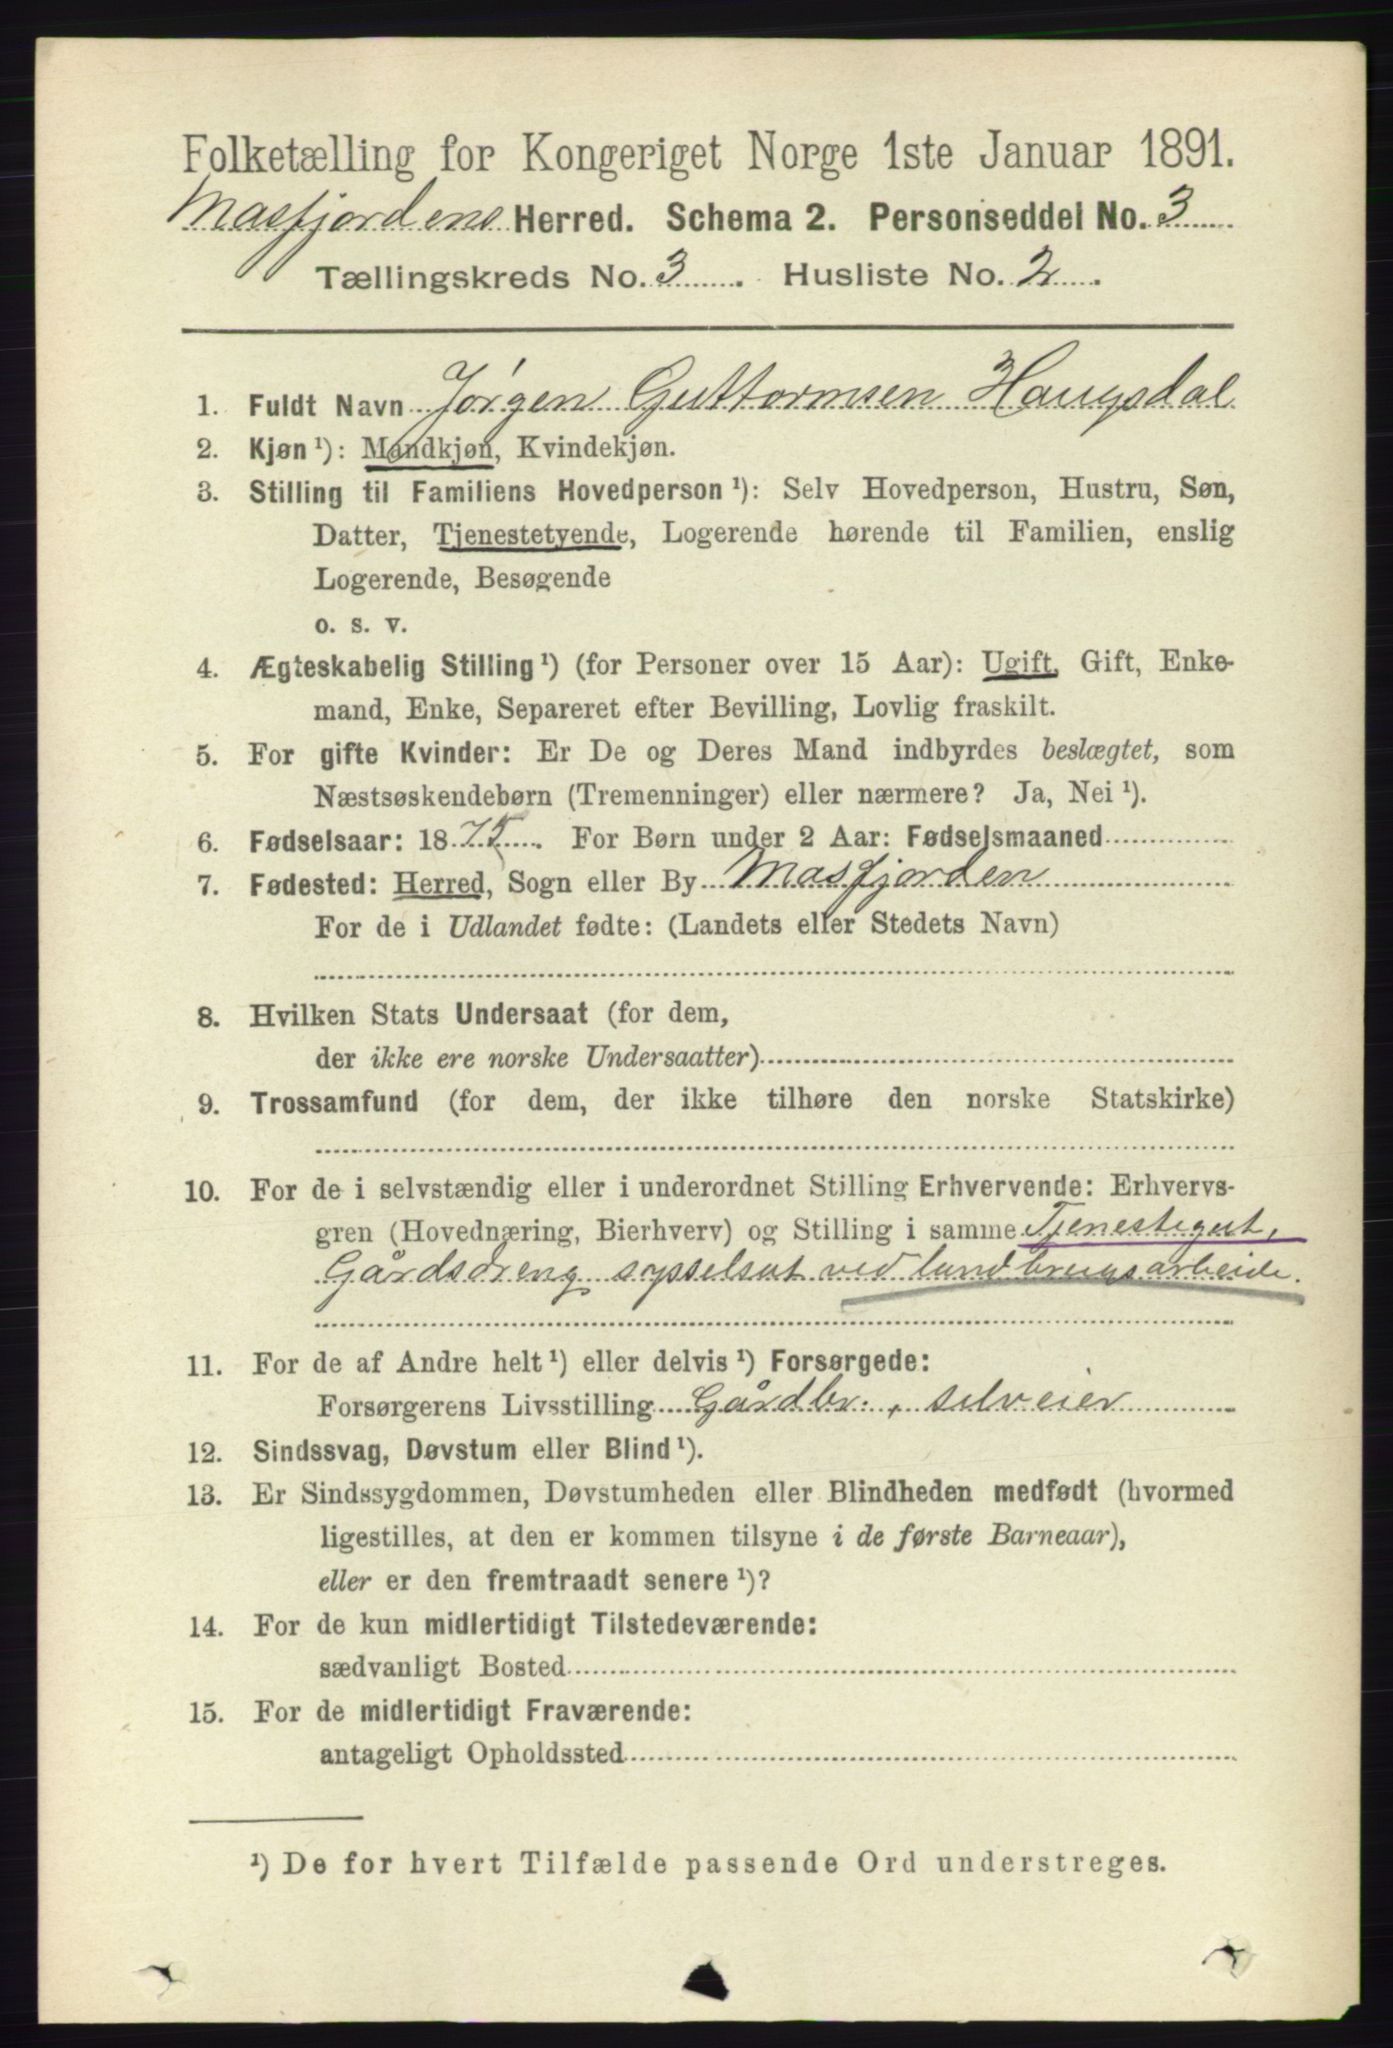 Folketælling for Kongeriget Norge 1ste Januar 1891.
Masfjordens Herred. Schema 2. Personseddel No. 3
Tællingskreds No. 3. Husliste No. 2.
1. Fuldt Navn Jørgen Guttormsen Haugsdal
2. Kjøn ¹): Mandkjøn, Kvindekjøn.
3. Stilling til Familiens Hovedperson ¹): Selv Hovedperson, Hustru, Søn,
Datter, Tjenestetyende, Logerende hørende til Familien, enslig
Logerende, Besøgende
o. s. v.
4. Ægteskabelig Stilling ¹) (for Personer over 15 Aar): Ugift, Gift, Enke-
mand, Enke, Separeret efter Bevilling, Lovlig fraskilt.
5. For gifte Kvinder: Er De og Deres Mand indbyrdes beslægtet, som
Næstsøskendebørn (Tremenninger) eller nærmere? Ja, Nei ¹).
6. Fødselsaar: 1875. For Børn under 2 Aar: Fødselsmaaned
7. Fødested: Herred, Sogn eller By Masfjorden
For de i Udlandet fødte: (Landets eller Stedets Navn)
8. Hvilken Stats Undersaat (for dem,
der ikke ere norske Undersaatter)
9. Trossamfund (for dem, der ikke tilhøre den norske Statskirke)
10. For de i selvstændig eller i underordnet Stilling Erhvervende: Erhvervs-
gren (Hovednæring, Bierhverv) og Stilling i samme Tjenestegut,
Gårdsdreng sysselsat ved landbrugsarbeide.
11. For de af Andre helt ¹) eller delvis ¹) Forsørgede:
Forsørgerens Livsstilling Gårdbr., selveier
12. Sindssvag, Døvstum eller Blind ¹).
13. Er Sindssygdommen, Døvstumheden eller Blindheden medfødt (hvormed
ligestilles, at den er kommen tilsyne i de første Barneaar),
eller er den fremtraadt senere ¹)?
14. For de kun midlertidigt Tilstedeværende:
sædvanligt Bosted
15. For de midlertidigt Fraværende:
antageligt Opholdssted
¹) De for hvert Tilfælde passende Ord understreges.